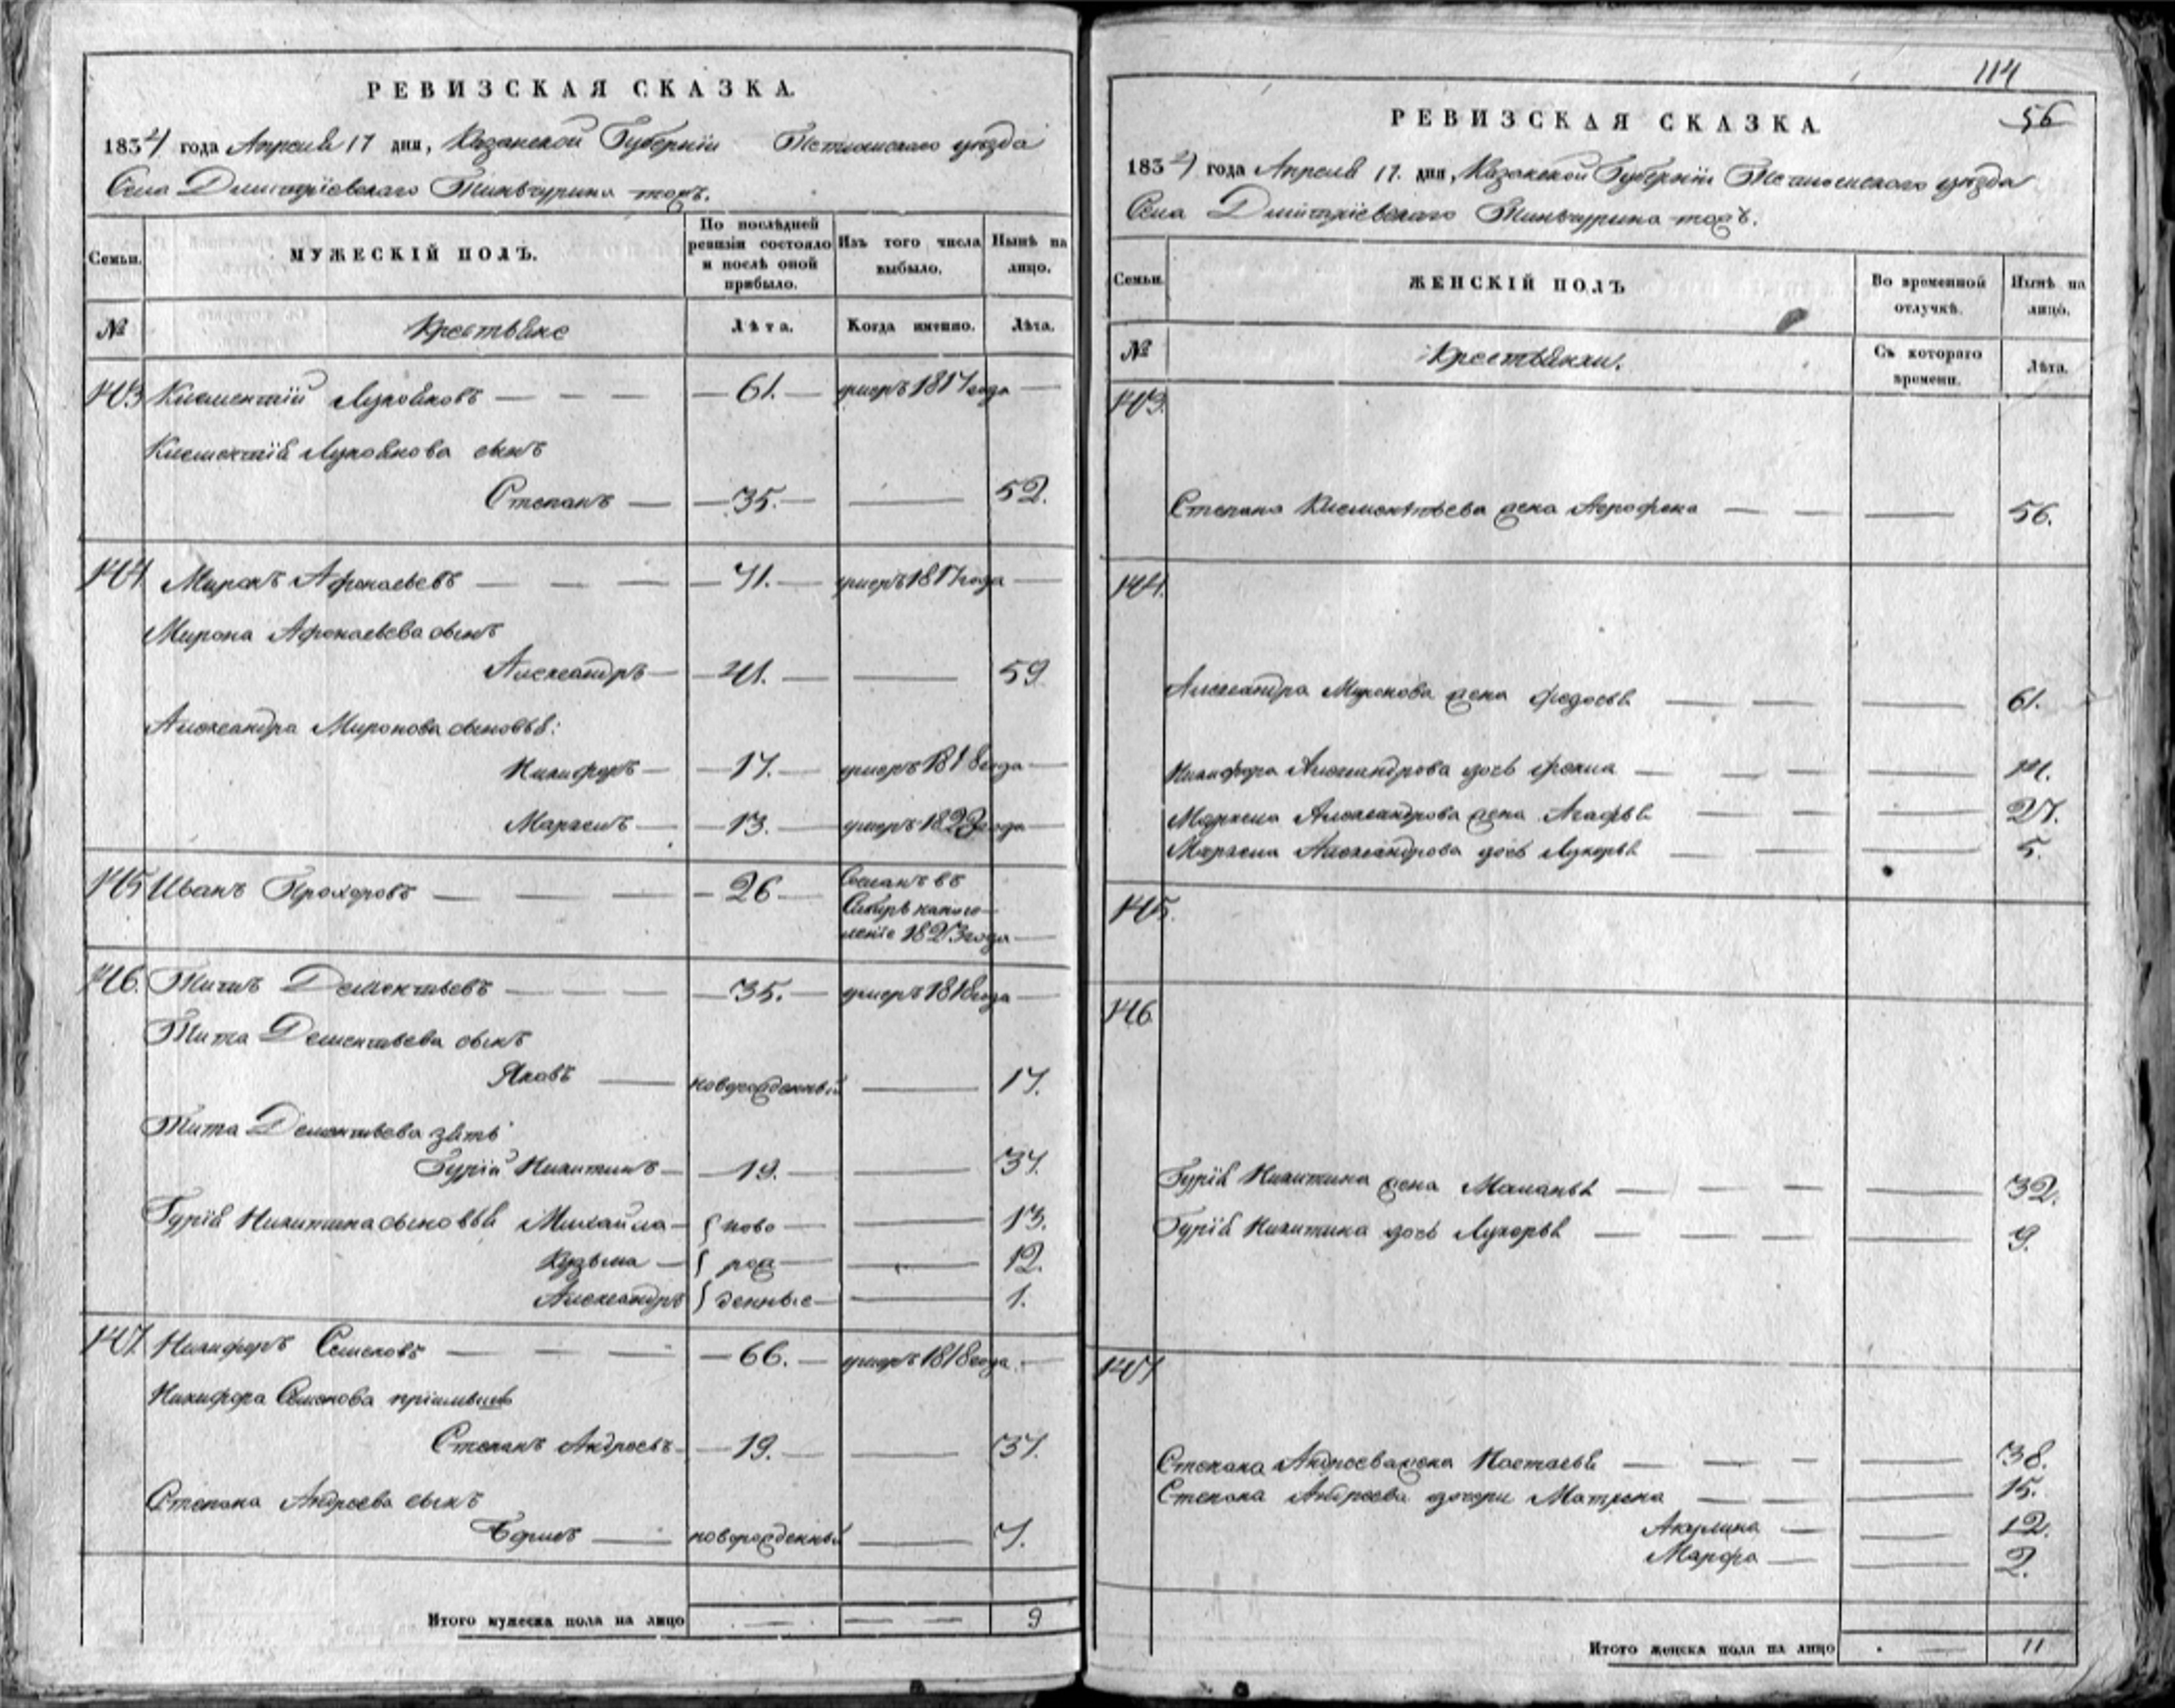 РЕВИЗСКАЯ СКАЗКА.
1834 года Апреля 17 дня, Казанской Губернiи Тетюшскаго уѣзда
Села Дмитрiевскаго Тиньчурина тожъ.
Семьи.
МУЖЕСКIЙ ПОЛЪ.
По послѣдней ревизiи состояло и послѣ оной прибыло.
Изъ того числа выбыло.
Нынѣ на лицо.
№
Крестьяне
Лѣта.
Когда именно.
Лѣта.
143 Клементiй Лукояновъ 61. умеръ 1817 года
Клементiя Лукоянова сынъ
Степанъ 35. 52.
144 Миронъ Афонасьевъ 71. умеръ 1817 года
Мирона Афонасьева сынъ
Александръ 41. 59
Александра Миронова сыновья:
Никифоръ 17. умеръ 1818 года
Маркелъ 13. умеръ 1823 года
145 Иванъ Прохоровъ 26 Сосланъ въ
Сибирь на посе-
ленiе 1823 года
146. Титъ Дементьевъ 35. умеръ 1818 года
Тита Дементьева сынъ
Яковъ новорожденный 17.
Тита Дементьева зять
Гурiй Никитинъ 19. 37.
Гурiя Никитина сыновья Михайла ново 13.
Кузьма рож 12.
Александръ денные 1.
147 Никифоръ Семеновъ 66. умеръ 1818 года.
Никифора Семенова прiимышъ
Степанъ Андреевъ 19. 37.
Степана Андреева сынъ
Ефимъ новорожденный 7.
Итого мужеска пола на лицо 9
114
56
РЕВИЗСКАЯ СКАЗКА.
1834 года Апреля 17. дня, Казанской Губернiи Тетюшскаго уѣзда
Села Дмитрiевскаго Тиньчурина тожъ.
Семьи.
ЖЕНСКIЙ ПОЛЪ
Во временной отлучкѣ.
Нынѣ на лицо.
№
Крестьянки.
Съ котораго времени.
Лѣта.
143.
Степана Клементьева жена Агрофена 56.
144.
Александра Миронова жена Федосья 61.
Никифора Александрова дочь Фекла 14.
Маркела Александрова жена Агафья 27.
Маркела Александрова дочь Лукерья 5.
145.
146
Гурiя Никитина жена Маланья 32.
Гурiя Никитина дочь Лукерья 9.
147
Степана Андреева жена Настасья 38.
Степана Андреева дочери Матрена 15.
Акулина 12.
Марфа 2.
Итого женска пола на лицо 11